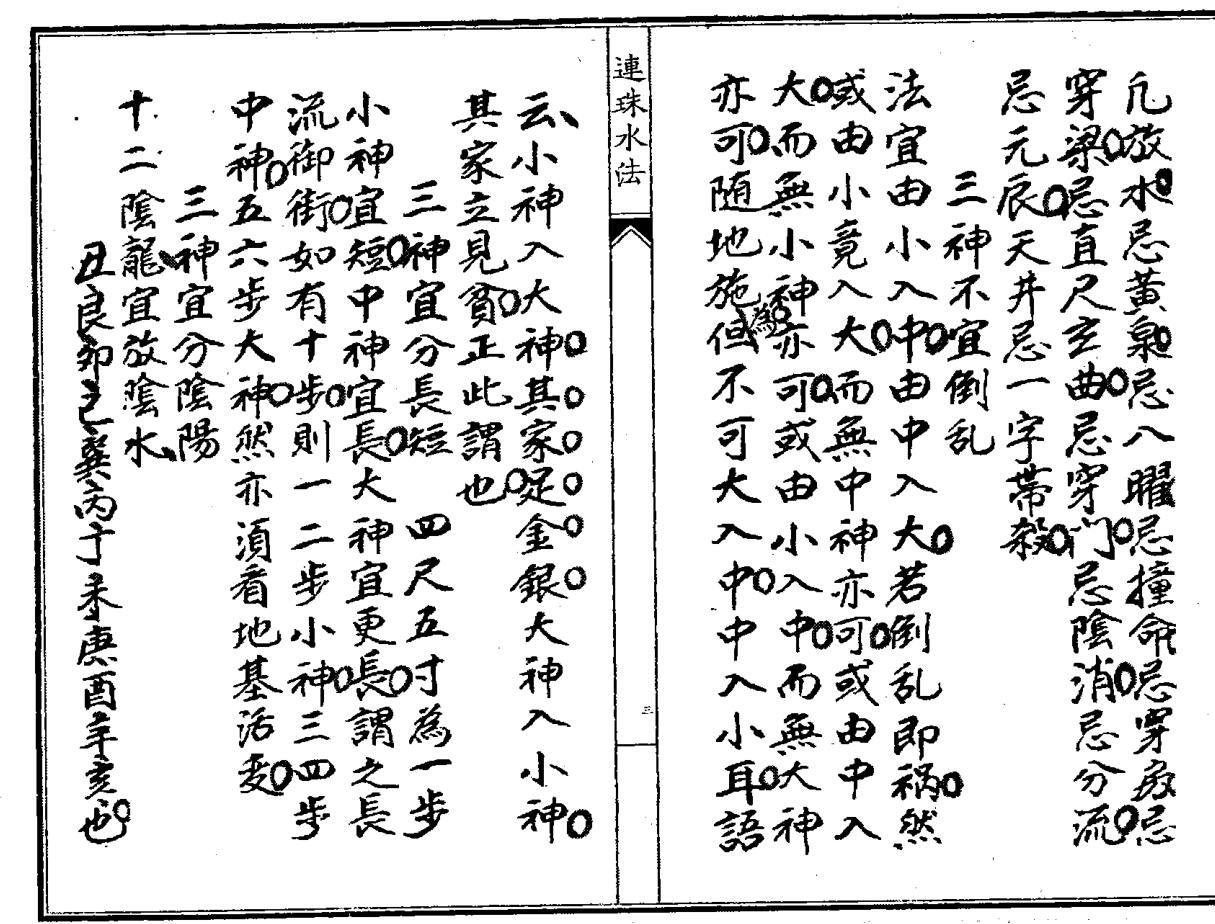 凢放水忌黃泉忌八曜忌撞命忌穿房忌
穿梁忌直尺玄曲忌穿门忌陰消忌分流
忌元辰天井忌一字帯殺
三神不宜倒乱
法宜由小入中由中入大若倒乱即禍然
或由小竟入大而無中神亦可或由中入
大而無小神亦可或由小入中而無大神
亦可随地施為但不可大入中中入小耳語
連珠水法
三
云小神入大神其家足金銀大神入小神
其家立見貧正此謂也
三神宜分長短 四尺五寸為一步
小神宜短中神宜長大神宜更長謂之長
流御街如有十步則一二步小神三四步
中神五六步大神然亦須看地基活变
三神宜分陰陽
十二陰龍宜放陰水
丑艮卯巳巽丙丁未庚酉辛亥也